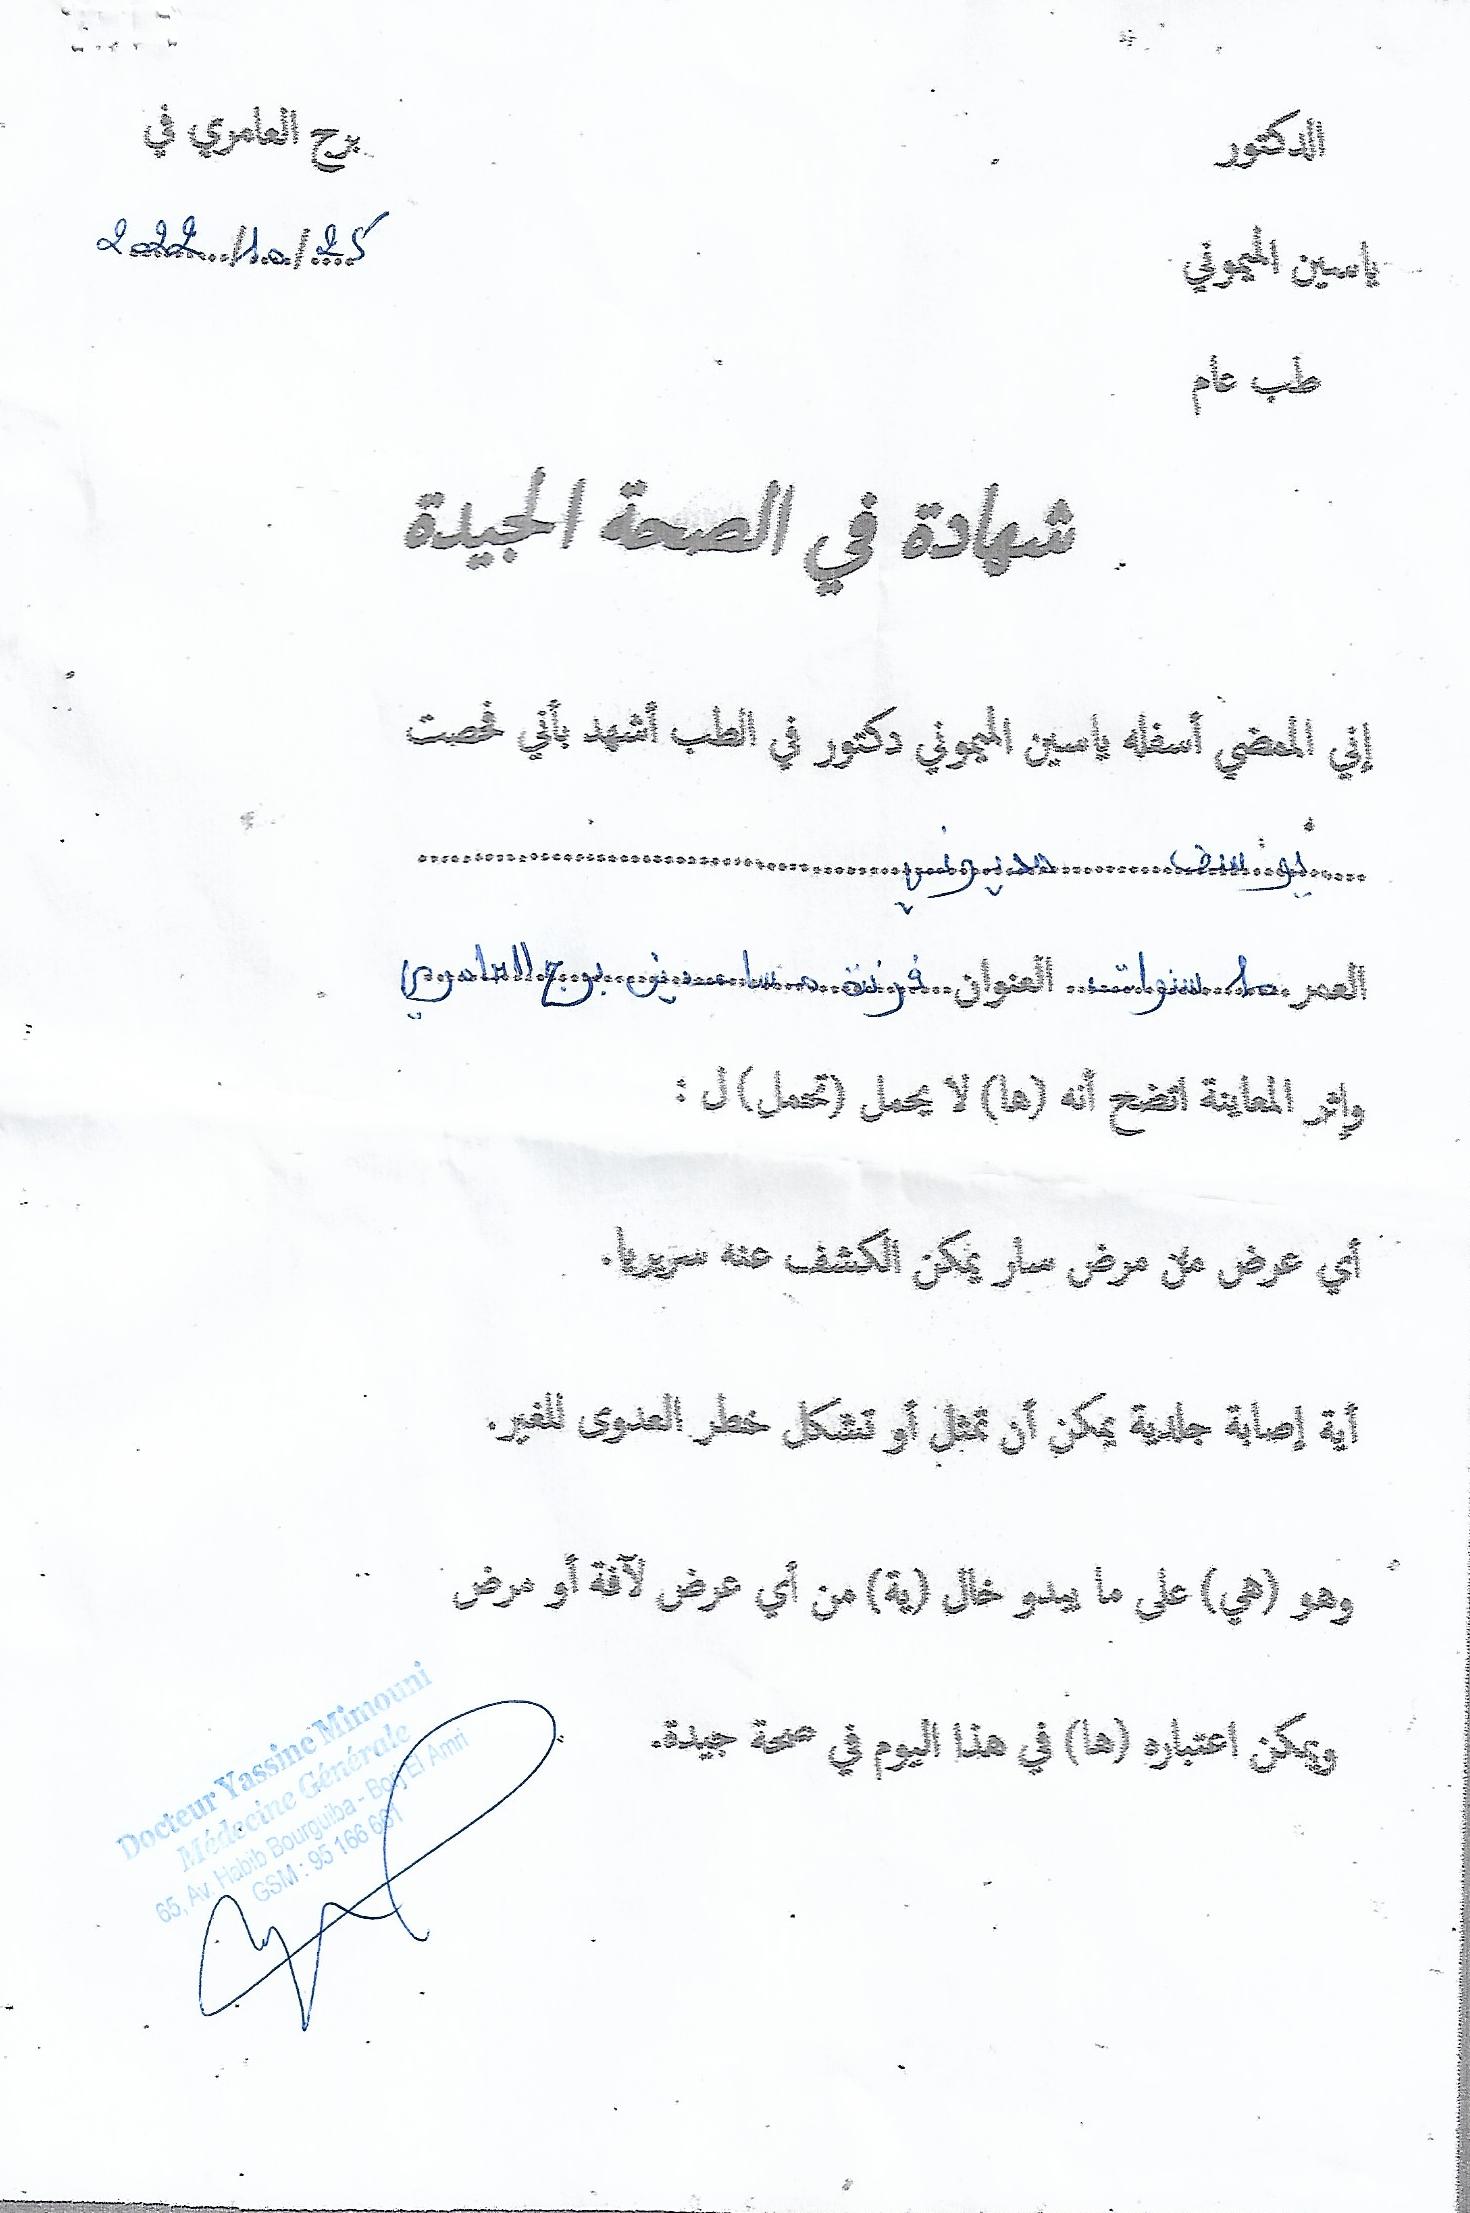 الدكتور
برج العامري في
ياسين الميموني
25/10/2022
طب عام
شهادة في الصحة الجيدة
إني الممضي أسفله ياسين الميموني دكتور في الطب أشهد بأني فحصت
يوسف مديوني
العمر 10 سنوات العنوان فرنة برج العامري
وإثر المعاينة اتضح أنه (ها) لا يحمل (تحمل) ل :
أي عرض من مرض سار يمكن الكشف عنه سريريا.
أية إصابة جلدية يمكن أن تمثل أو تشكل خطر العدوى للغير.
وهو (هي) على ما يبدو خال (ية) من أي عرض لآفة أو مرض
ويمكن اعتباره (ها) في هذا اليوم في صحة جيدة.
Docteur Yassine Mimouni
Médecine Générale
65, Av. Habib Bourguiba - Borj El Amri
GSM : 95 166 661